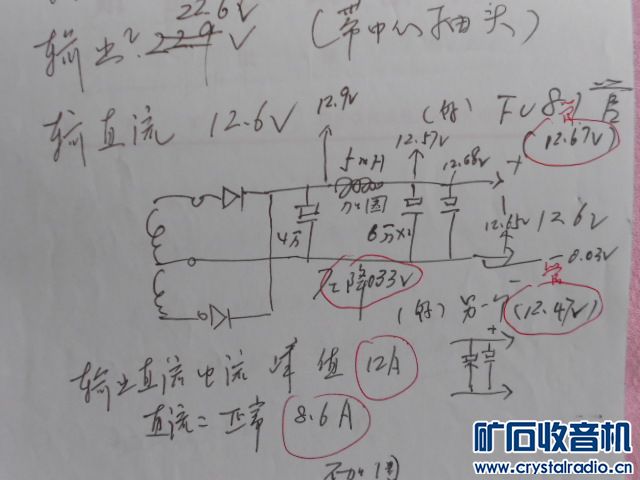 22.6V
输出: 22.9V (带中心抽头)
输直流 12.6V
12.9V
(好) FU 81管
(12.67V)
5mH
12.57V
12.68V
+
4万
6万×2
12.65V
12.6V
-0.03V
压降0.33V
管
(好) 另一个(12.47V)
+
输出直流电流 峰值 12A
直流= 正常 8.6A
矿石收音机
www.crystalradio.cn